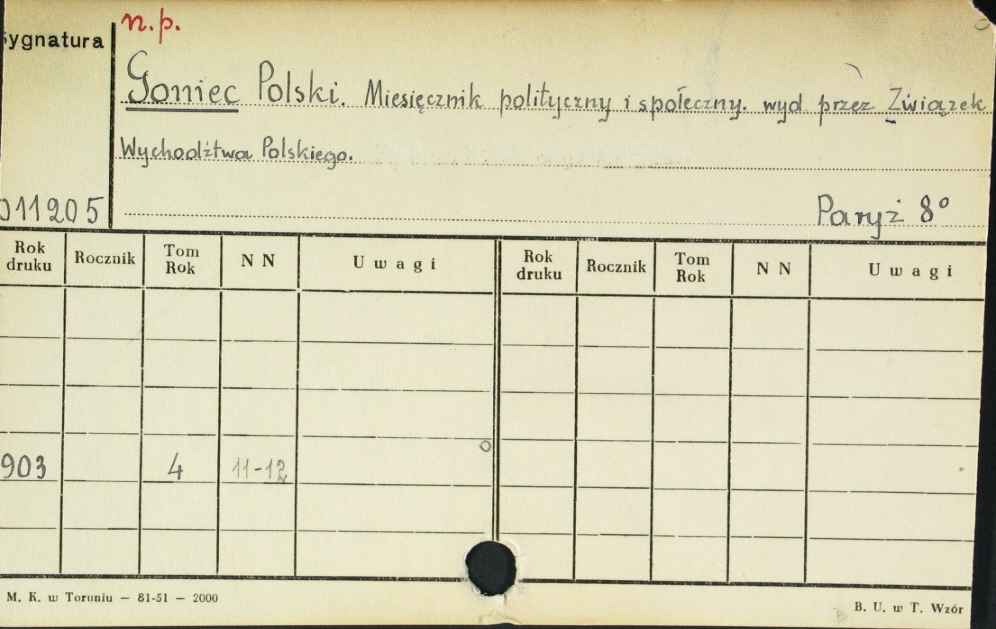 n.p.
Sygnatura
Goniec Polski. Miesięcznik polityczny i społeczny. wyd przez Związek
Wychodźtwa Polskiego.
011205
Paryż 8°
Rok druku Rocznik Tom Rok N N Uwagi Rok druku Rocznik Tom Rok N N Uwagi
903 4 11-12
M. K. w Toruniu — 81-51 — 2000
B. U. w T. Wzór